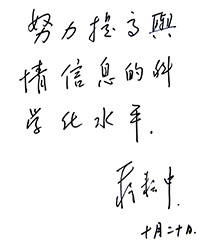 努力提高舆
情信息的科
学化水平.
蒋耘中.
十月二十日.